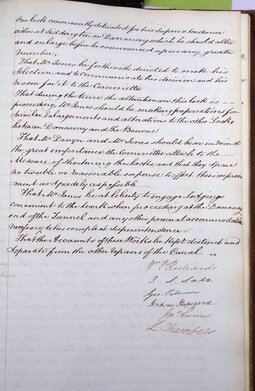 One Lock conveniently situated for his Superintendance
either at Seddinglee or Danaway which he should alter
and enlarge before he commenced upon any greater
number.
That Mr Jones be forthwith directed to make his
Selection and to communicate his decision and his
reason for it to the Committee.
That during the time the alteration of this Lock is
proceeding Mr Jones should be making preparations for
similar Enlargements and alterations to the other Locks
between Danaway and the Bourne
That Mr Denyn and Mr Jones should bear in mind
the great importance the Committee attach to the
Measure of shortening the Locks, and that they spare
no trouble or reasonable expense to effect this improve
ment as speedily as possible.
That Mr Jones be at liberty to engage Lodgings
convenient to the Work when proceeding at the Danaway
end of the Tunnel and any other personal accommodation
necessary to his compleat superintendence
That the Accounts of these Works be kept distinct and
Separate from the other repairs of the Canal.
Wm Richards
J S Salt
Geo Peterson
Andrew Hapgood
Chambers